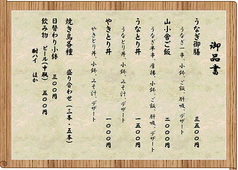 御品書
うなぎ御膳　二五〇〇円
うなぎ一本、小鉢、ご飯、肝吸、デザート
山小舎ご飯　二〇〇〇円
うなぎ半本、唐揚、小鉢、ご飯、肝吸、デザート
うなとり丼　一五〇〇円
うなとり丼、小鉢、みそ汁、デザート
やきとり丼　一〇〇〇円
やきとり丼、小鉢、みそ汁、デザート
焼き鳥各種　盛り合わせ(三本・五本)
日替わり小鉢　三〇〇円
飲み物　ビール(中瓶)　五〇〇円
酎ハイ　ほか